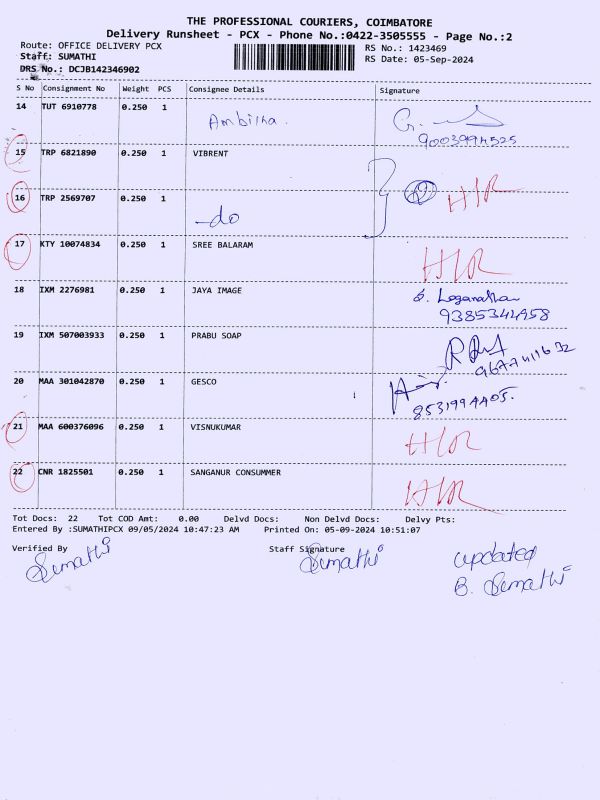 THE PROFESSIONAL COURIERS, COIMBATORE
Delivery Runsheet - PCX - Phone No.:0422-3505555 - Page No.:2
Route: OFFICE DELIVERY PCX RS No.: 1423469
Staff: SUMATHI RS Date: 05-Sep-2024
DRS No.: DCJB142346902
S No Consignment No Weight PCS Consignee Details Signature
14 TUT 6910778 0.250 1 Ambika.
15 TRP 6821890 0.250 1 VIBRENT
16 TRP 2569707 0.250 1 -do H/R
17 KTY 10074834 0.250 1 SREE BALARAM H/R
18 IXM 2276981 0.250 1 JAYA IMAGE Loganathan
9385344958
19 IXM 507003933 0.250 1 PRABU SOAP
20 MAA 301042870 0.250 1 GESCO
8531994405.
21 MAA 600376096 0.250 1 VISNUKUMAR H/R
22 CNR 1825501 0.250 1 SANGANUR CONSUMMER H/R
Tot Docs: 22 Tot COD Amt: 0.00 Delvd Docs: Non Delvd Docs: Delvy Pts:
Entered By :SUMATHIPCX 09/05/2024 10:47:23 AM Printed On: 05-09-2024 10:51:07
Verified By Staff Signature updated
Sumathi Sumathi B. Sumathi